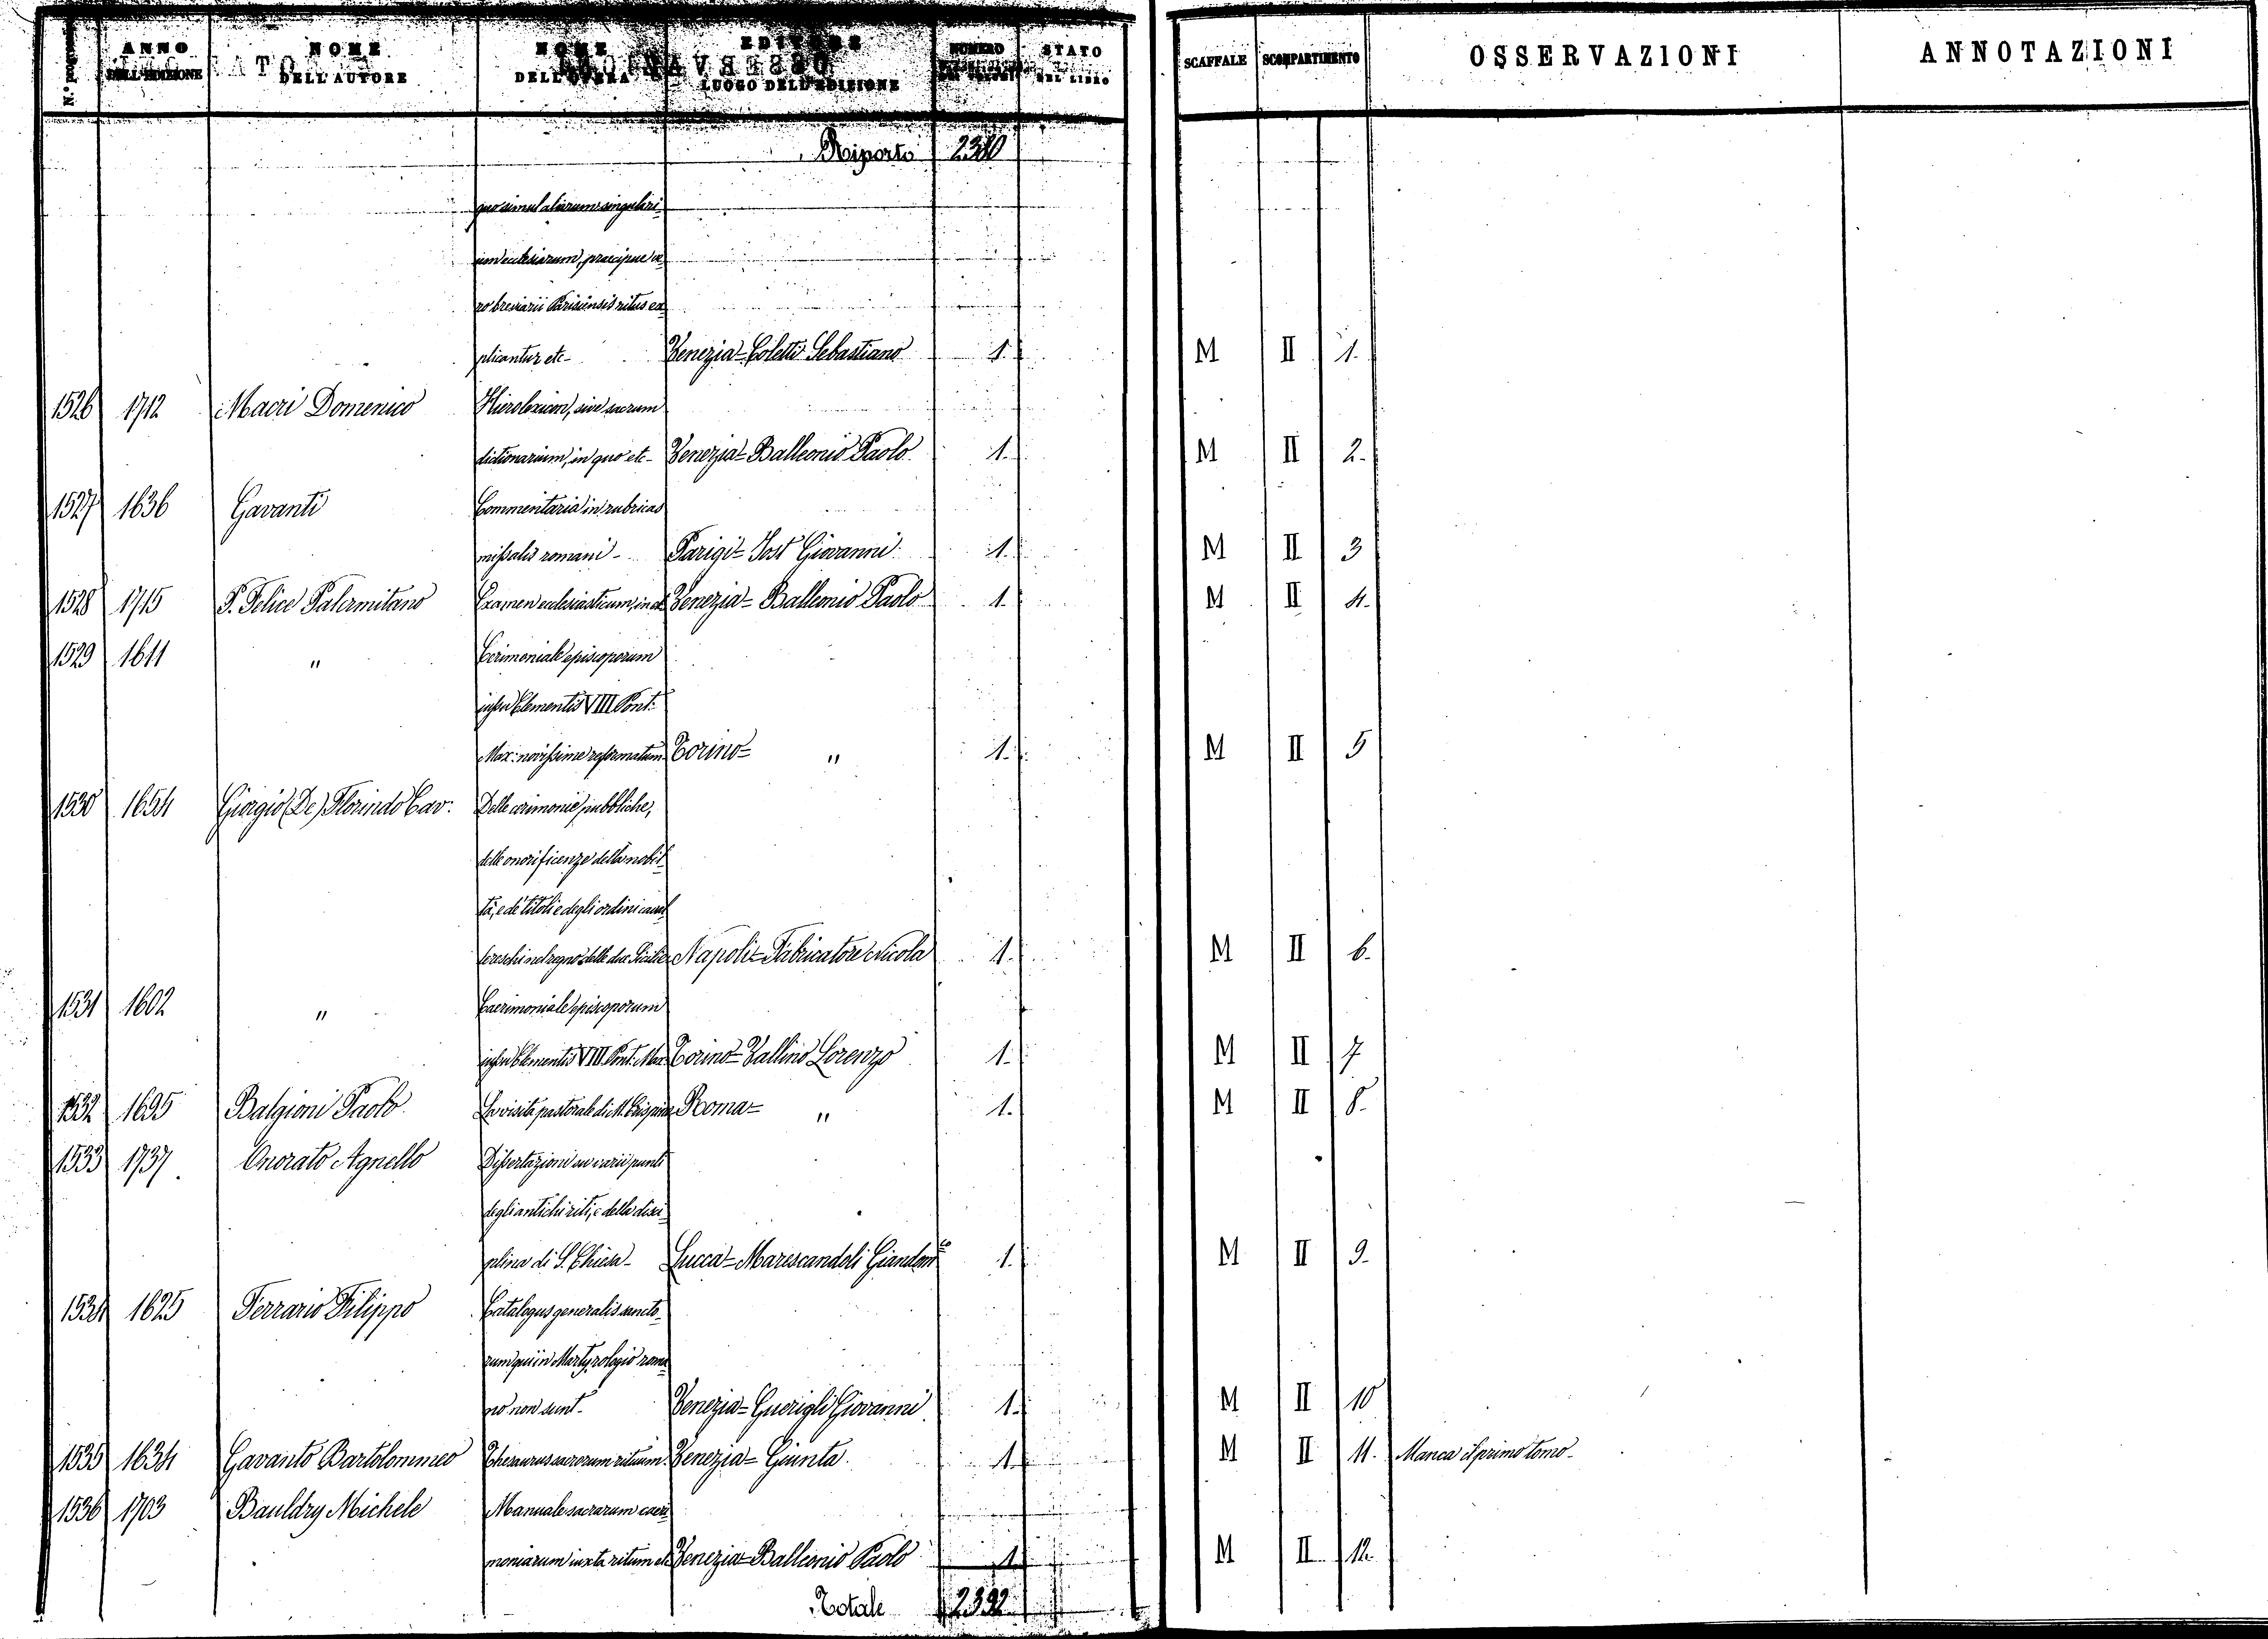 N.° progr. ANNO DELL'EDIZIONE NOME DELL'AUTORE NOME DELL'OPERA EDITORE LUOGO DELL'EDIZIONE NUMERO STATO DEL LIBRO SCAFFALE SCOMPARTIMENTO OSSERVAZIONI ANNOTAZIONI
Riporto 2380
quo simul aliarum singulari-
um ecclesiarum, praecipue ve-
ro breviarii Parisiensis ritus ex-
plicantur etc- Venezia- Coletti Sebastiano 1. M II 1.
1526 1712 Macri Domenico Hierolexicon, sive sacrum
dictionarium, in quo etc- Venezia- Balleonio Paolo 1. M II 2.
1527 1636 Gavanti Commentaria in rubricas
missalis romani- Parigi- Jost Giovanni 1. M II 3
1528 1715 P. Felice Palermitano Examen ecclesiasticum, in Venezia- Balleonio Paolo 1. M II 4.
1529 1611 " Cerimoniale episcoporum
iussu Clementis VIII Pont:
Max: novissime reformatum Torino- " 1. M II 5
1530 1654 Giorgio (De) Florindo Cav. Delle cerimonie pubbliche,
delle onorificenze della nobil-
tà, e de' titoli e degli ordini caval-
lereschi nel regno delle due Sicilie Napoli- Fabricatore Nicola 1. M II 6.
1531 1602 " Caerimoniale episcoporum
iussu Clementis VIII Pont. Max Torino- Vallino Lorenzo 1. M II 7
1532 1695 Balgioni Paolo La visita pastorale di M. Crispino Roma- " 1. M II 8.
1533 1737. Onorato Agnello Dissertazioni su varii punti
degli antichi riti, e della disci-
plina di S. Chiesa- Lucca- Marescandoli Giandom.co 1. M II 9.
1534 1625 Ferrario Filippo Catalogus generalis sancto-
rum qui in Martyrologio roma-
no non sunt- Venezia- Guerigli Giovanni 1. M II 10
1535 1634 Gavanto Bartolommeo Thesaurus sacrorum rituum. Venezia- Giunta. 1 M II 11. Manca il primo tomo-
1536 1703 Bauldry Michele Manuale sacrarum caeri-
moniarum iuxta ritum etc Venezia- Balleonio Paolo 1 M II 12.
Totale 2392